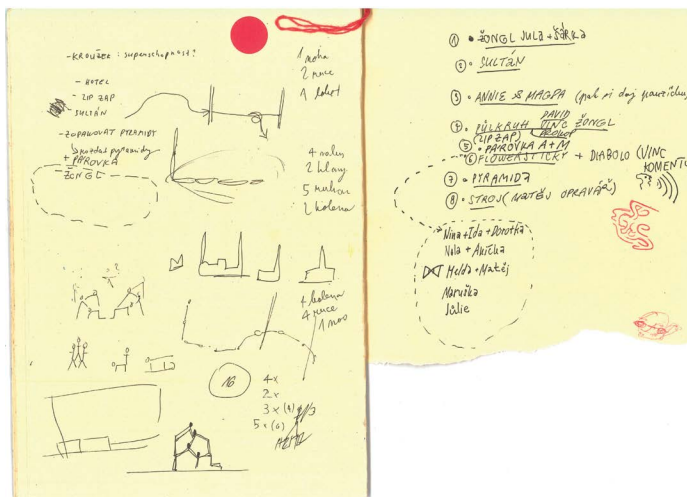 - KROUŽEK : superschopnost?
- HOTEL
- ZIP ZAP
- SULTÁN
- ZOPAKOVAT PYRAMIDY
+ PÁROVKA
- ŽONGL
1 noha
2 ruce
1 loket
4 nohy
2 hlavy
5 rukou
2 kolena
4 kolena
4 ruce
1 nos
16
4x
2x
3x (4)
5x (6)
① • ŽONGL JULA + ŠÁRKA
② • SULTÁN
③ • ANNIE & MAGDA (pak si daj pauzičku)
④ • PŮLKRUH DAVID VINC ŽONGL
(ZIP ZAP) PROKOP
⑤ • PÁROVKA A+M
⑥ FLOWERSTICKY + DIABOLO (VINC KOMENTUJE
⑦ • PYRAMIDA
⑧ • STROJ (MATĚJ OPRAVÁŘ)
Nina + Ida + Dorotka
Nola + Anička
Melda + Matěj
Maruška
Júlie